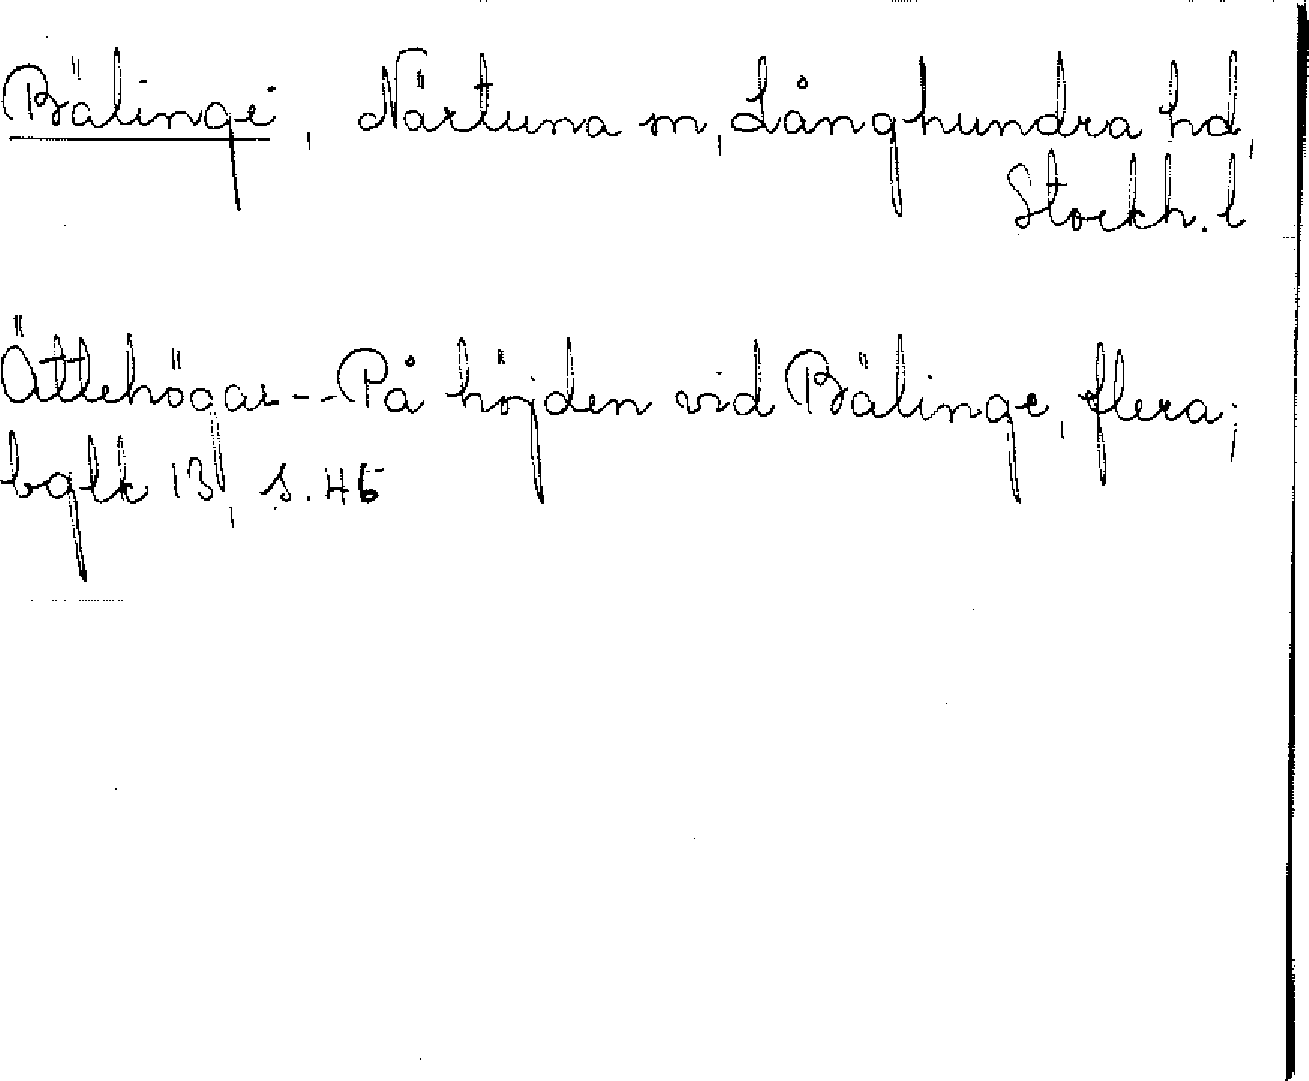 Bälinge, Närtuna sn, Långhundra hd,
Stockh. l
Ättehögar -- På höjden vid Bälinge, flera;
bglk 13, s. 45